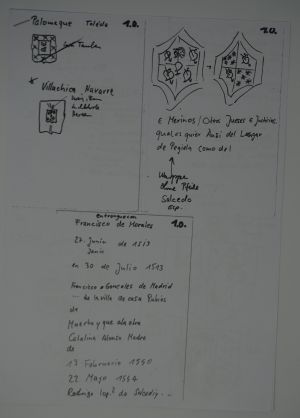 Palomeque Toledo 1.0.
Villachica Navarra
1.0.
E Merinos / Otros Jueses E Justicias
qualos quier Ansi del Lugar
de Pegiela como del
Wappen
Ohne Pfeile
Salcedo
Esp.
entronguecon 1.0.
Francisco de Morales
27. Junio de 1513
Janio
en 30 de Julio 1593
Francisco a Gonzales de Madrid
de la villa de casa Rubios
de
Muerto y que aba otra
Catalina Alonso Madre
de
13 Februario 1550
22 Mayo 1554
Rodrigo lop.² de Salcedo